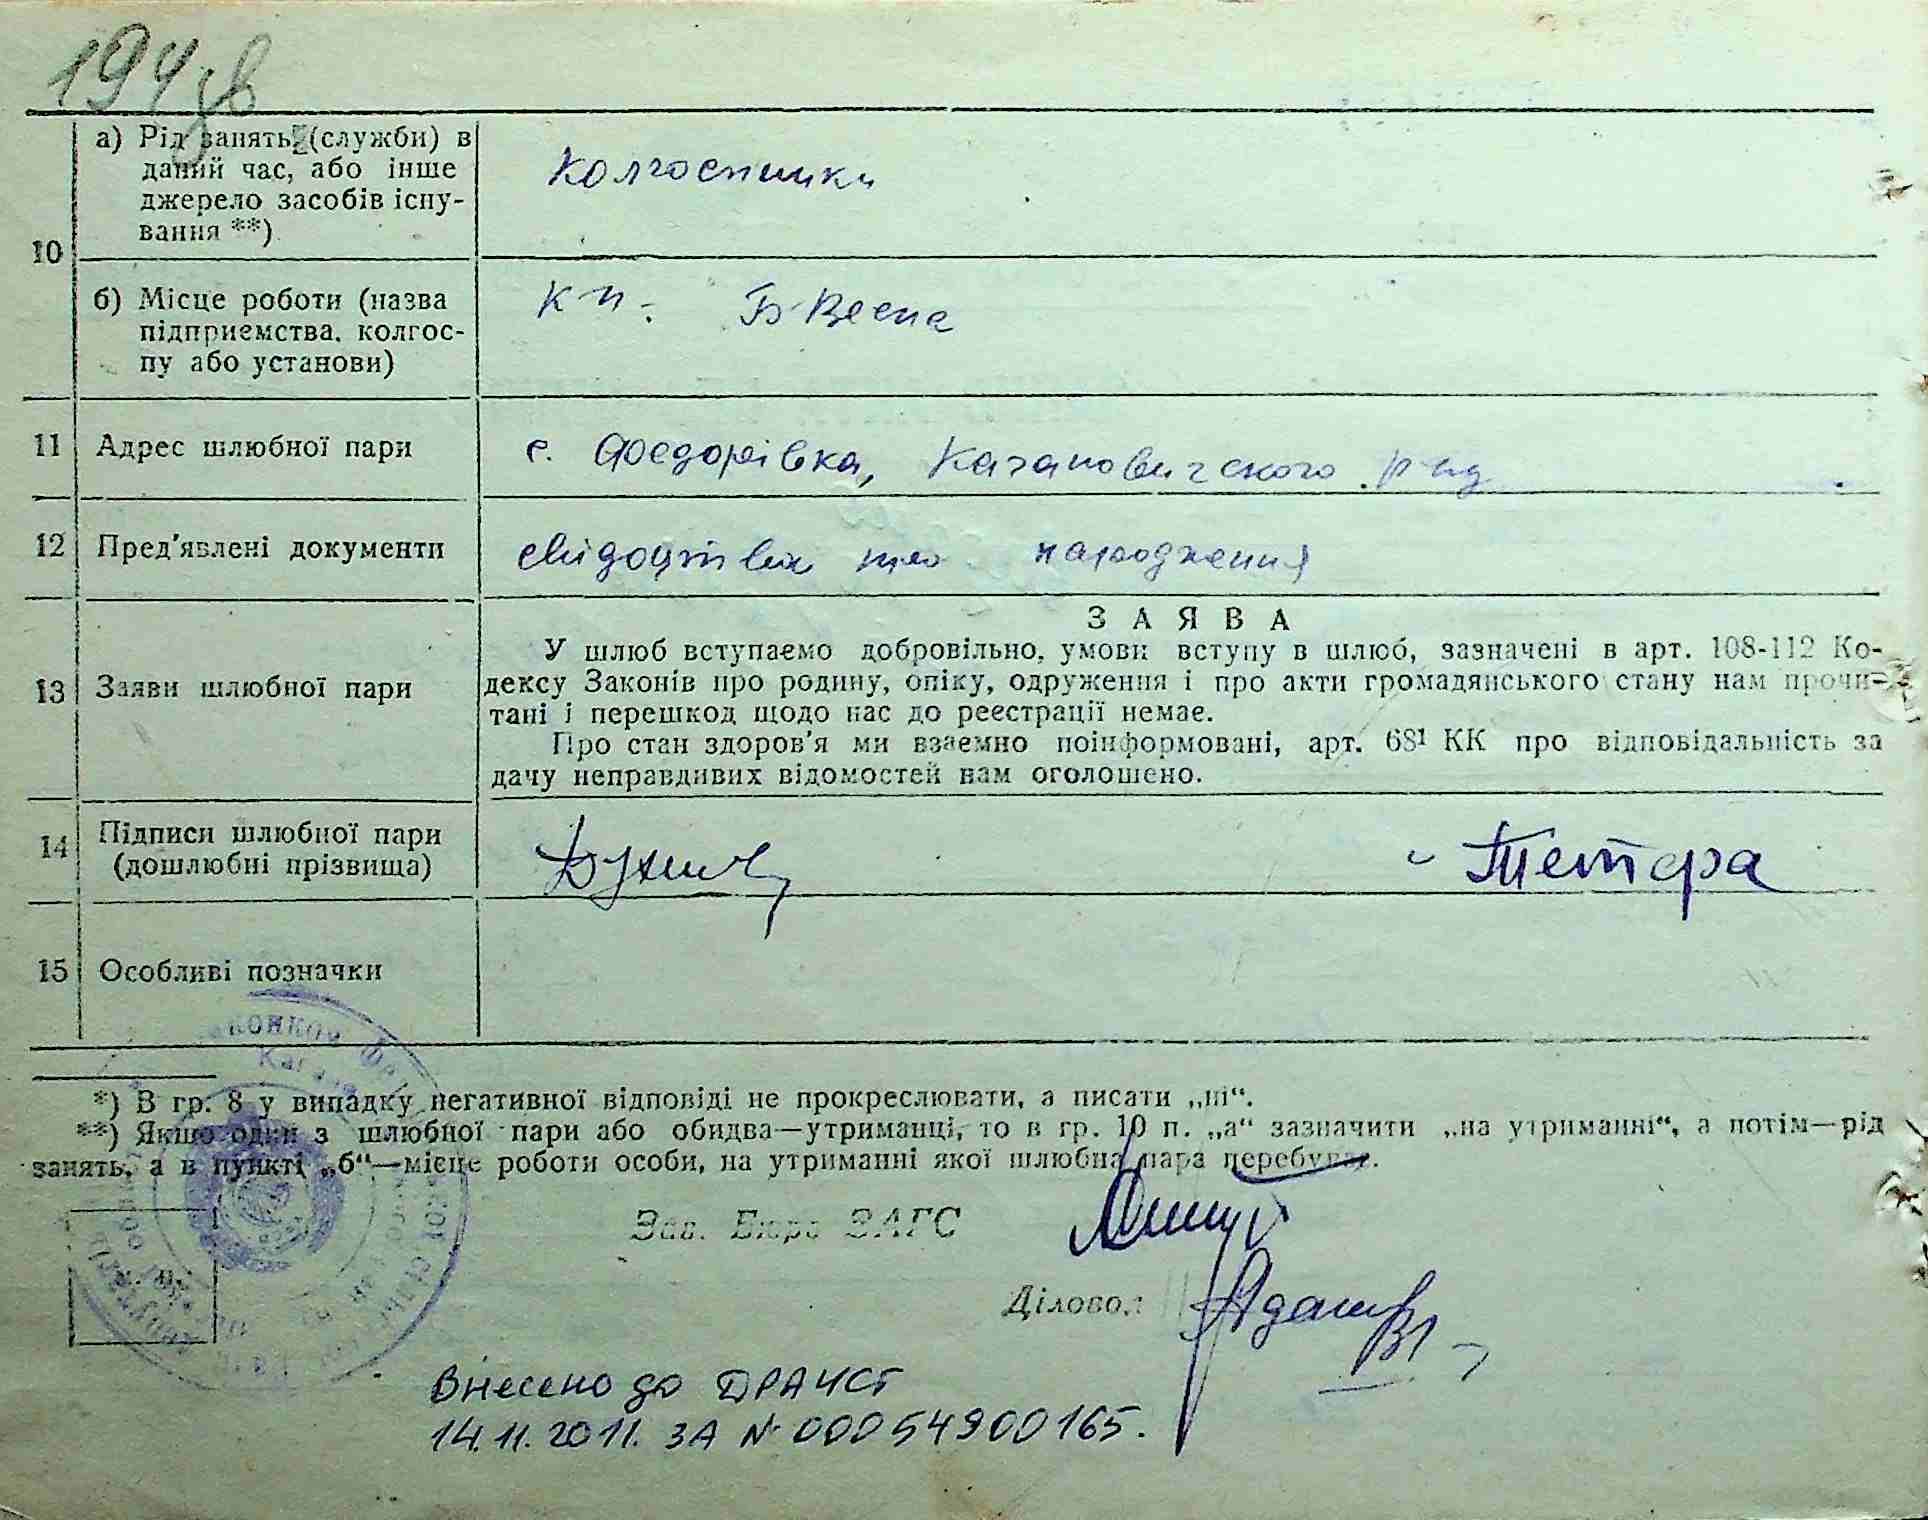 194 зв
а) Рід занять (служби) в
даний час, або інше
джерело засобів існу-
вання **)
Колгоспники
10
б) Місце роботи (назва
підприємства, колгос-
пу або установи)
кп. Б-Весна
11 Адрес шлюбної пари
с. Федорівка, Кагановичского р-ну
12 Пред'явлені документи
свідоцтва про народження
13 Заяви шлюбної пари
ЗАЯВА
У шлюб вступаємо добровільно, умови вступу в шлюб, зазначені в арт. 108-112 Ко-
дексу Законів про родину, опіку, одруження і про акти громадянського стану нам прочи-
тані і перешкод щодо нас до реєстрації немає.
Про стан здоров'я ми взаємно поінформовані, арт. 68¹ КК про відповідальність за
дачу неправдивих відомостей нам оголошено.
14 Підписи шлюбної пари
(дошлюбні прізвища)
Тетера
15 Особливі позначки
*) В гр. 8 у випадку негативної відповіді не прокреслювати, а писати „ні“.
**) Якщо один з шлюбної пари або обидва—утриманці, то в гр. 10 п. „а“ зазначити „на утриманні“, а потім—рід
занять, а в пункті „б“—місце роботи особи, на утриманні якої шлюбна пара перебуває.
Зав. Бюро ЗАГС
Діловод
м. п.
Внесено до ДРАЦСГ
14.11.2011. ЗА № 00054900165.